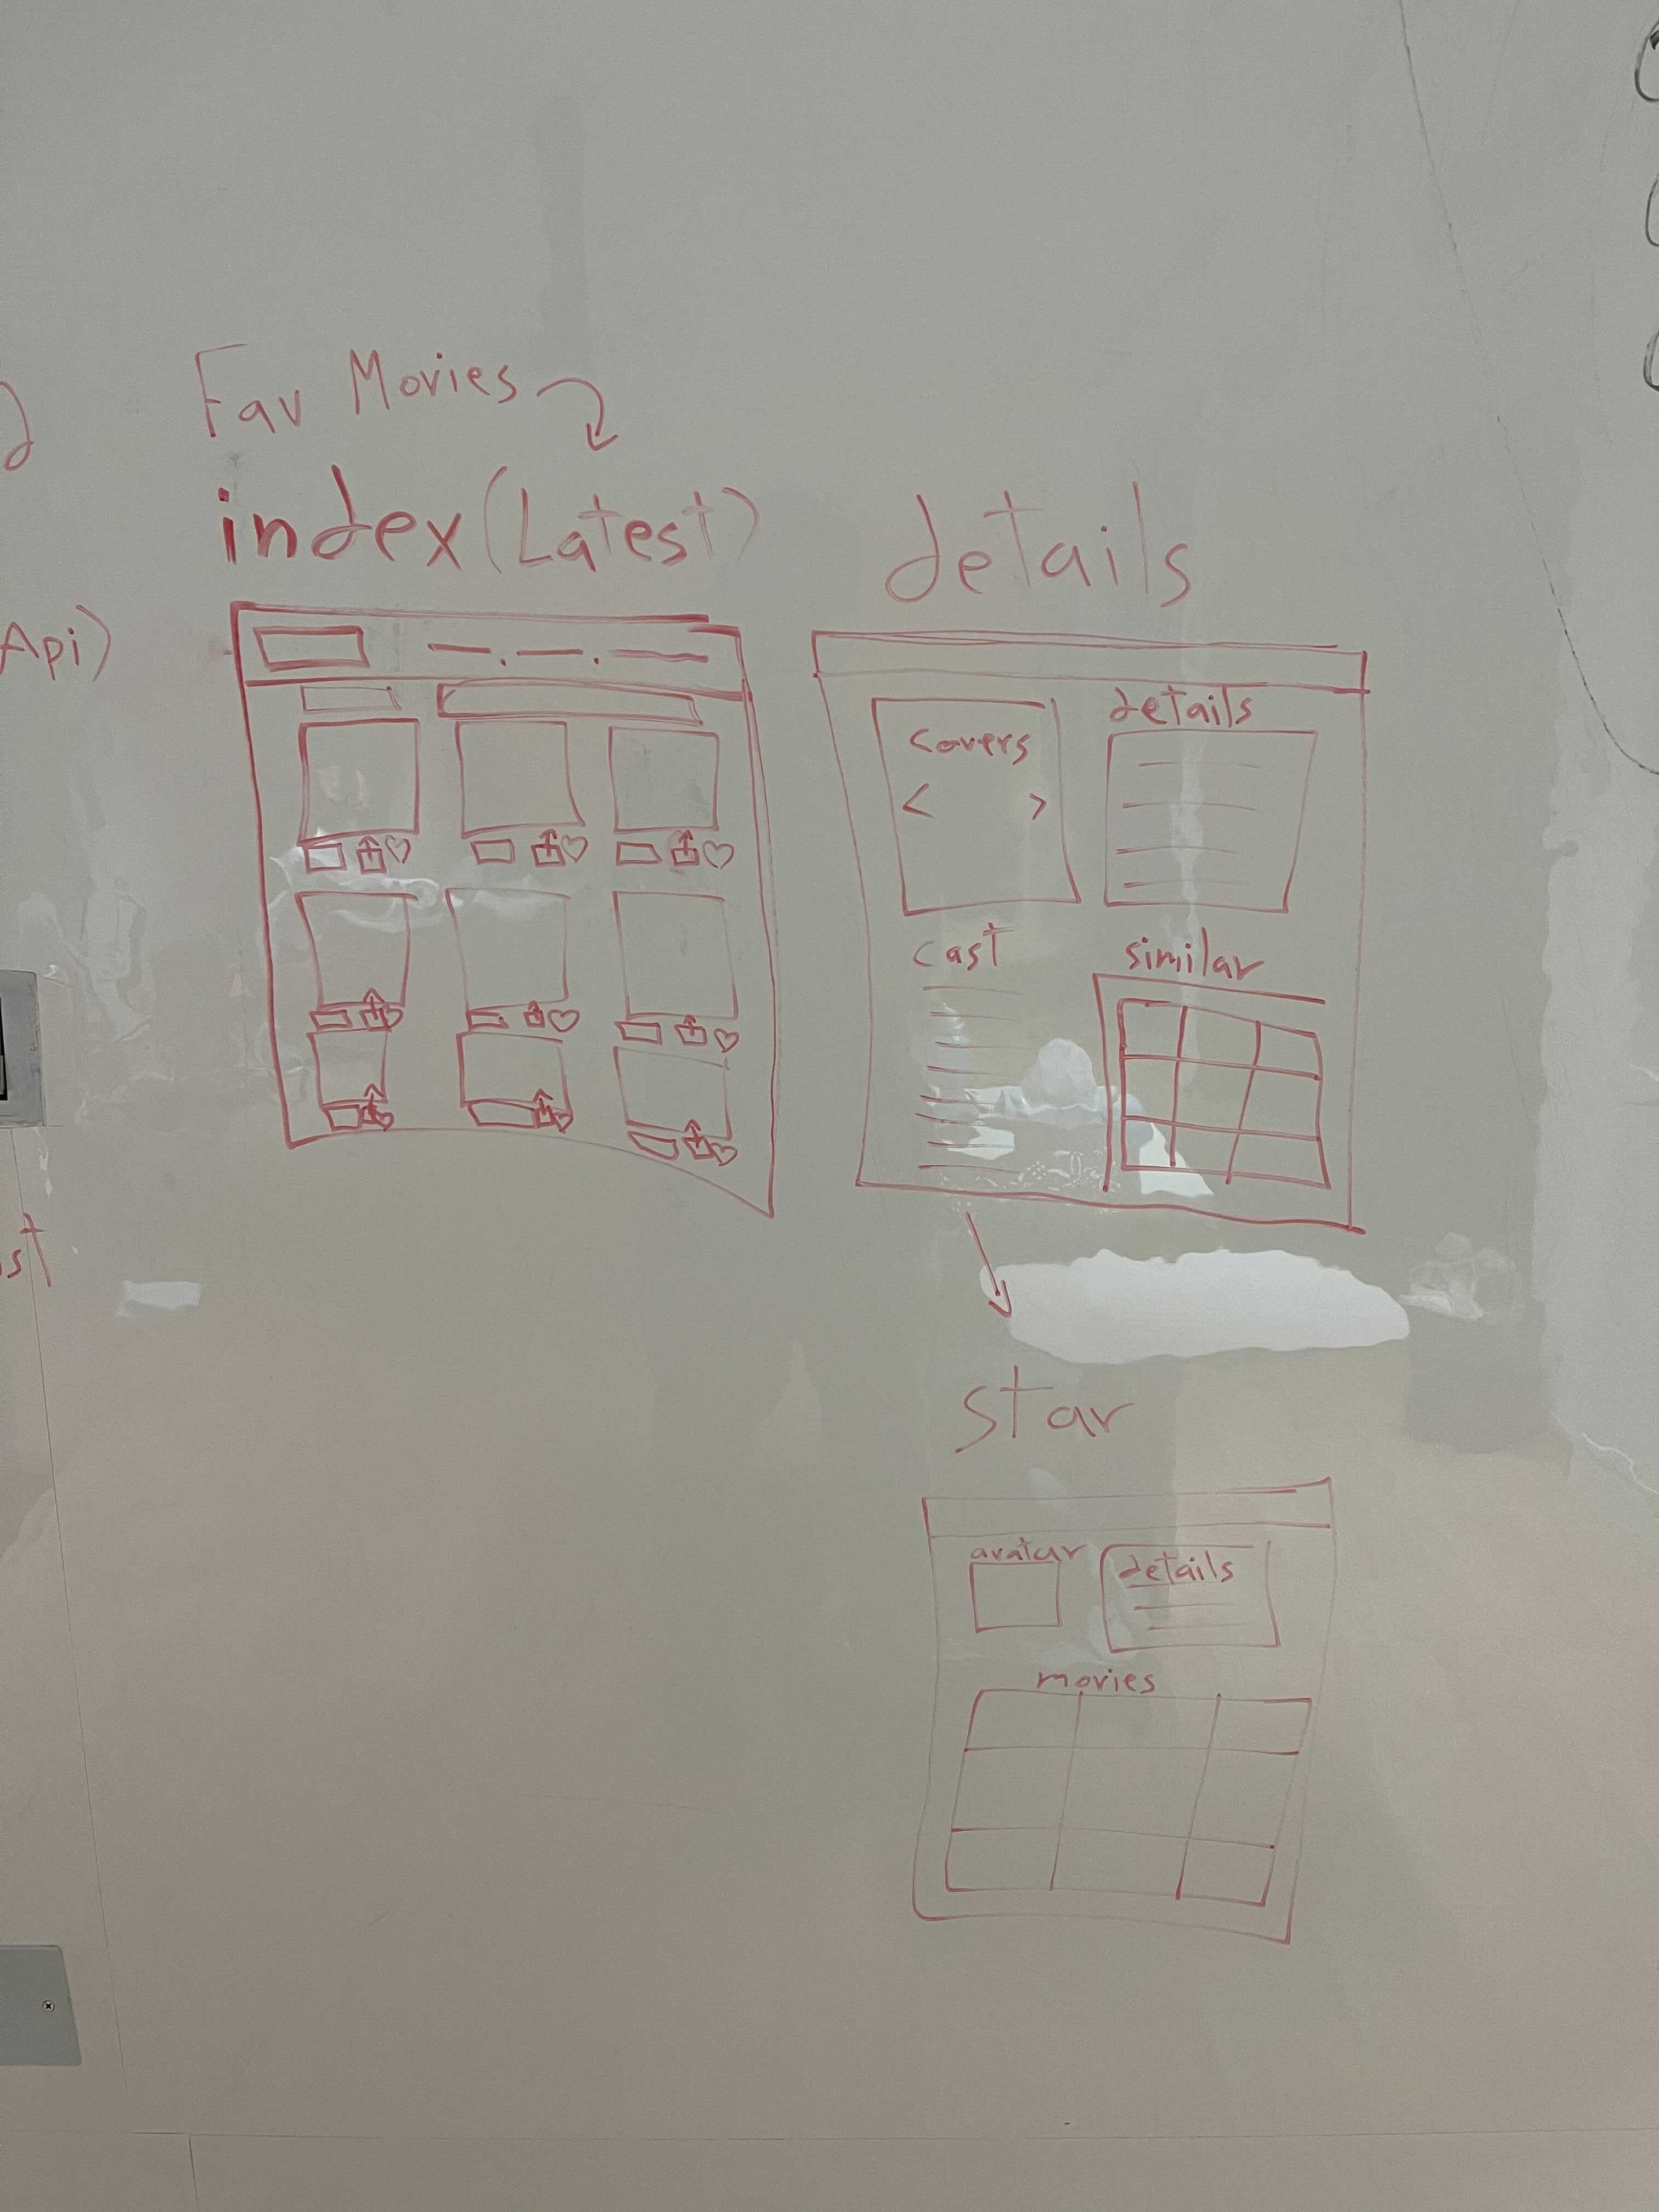 Fav Movies
index (Latest)
details
Api)
covers
< >
details
cast
similar
star
avatar
details
movies